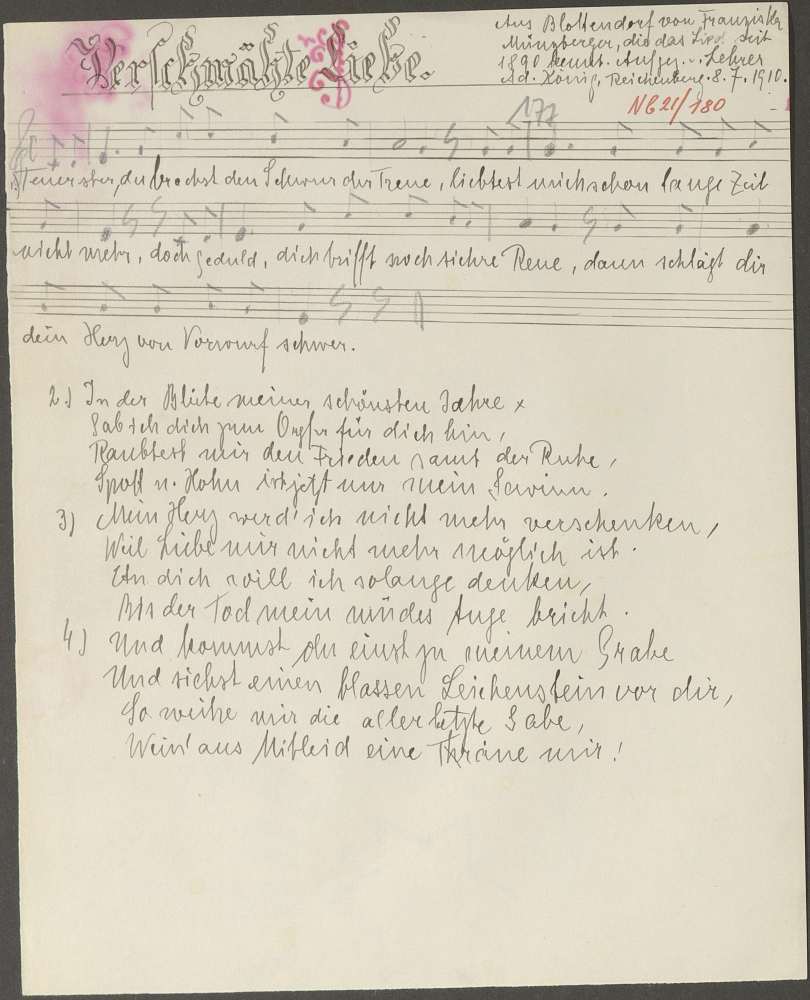 Verschmähte Liebe.
Aus Blottendorf von Franziska
Münzberger, die das Lied seit
1890 kennt. Aufgez. v. Lehrer
Ad. König, Reichenberg. 8. 7. 1910.
177
NB 21/180
1.) Teuerster, du brachst den Schwur der Treue, liebtest mich schon lange Zeit
nicht mehr, doch geduld, dich trifft noch sichre Reue, dann schlägt dir
dein Herz von Vorwurf schwer.
2.) In der Blüte meiner schönsten Jahre
Gab ich dich zum Opfer für dich hin,
Raubtest mir den Frieden samt der Ruhe,
Spott u. Hohn ist jetzt nur mein Gewinn.
3) Mein Herz werd' ich nicht mehr verschenken,
Weil Liebe mir nicht mehr möglich ist.
An dich will ich solange denken,
Bis der Tod mein müdes Auge bricht.
4) Und kommst du einst zu meinem Grabe
Und siehst einen blassen Leichenstein vor dir,
So weihe mir die allerletzte Gabe,
Wein' aus Mitleid eine Thräne mir!